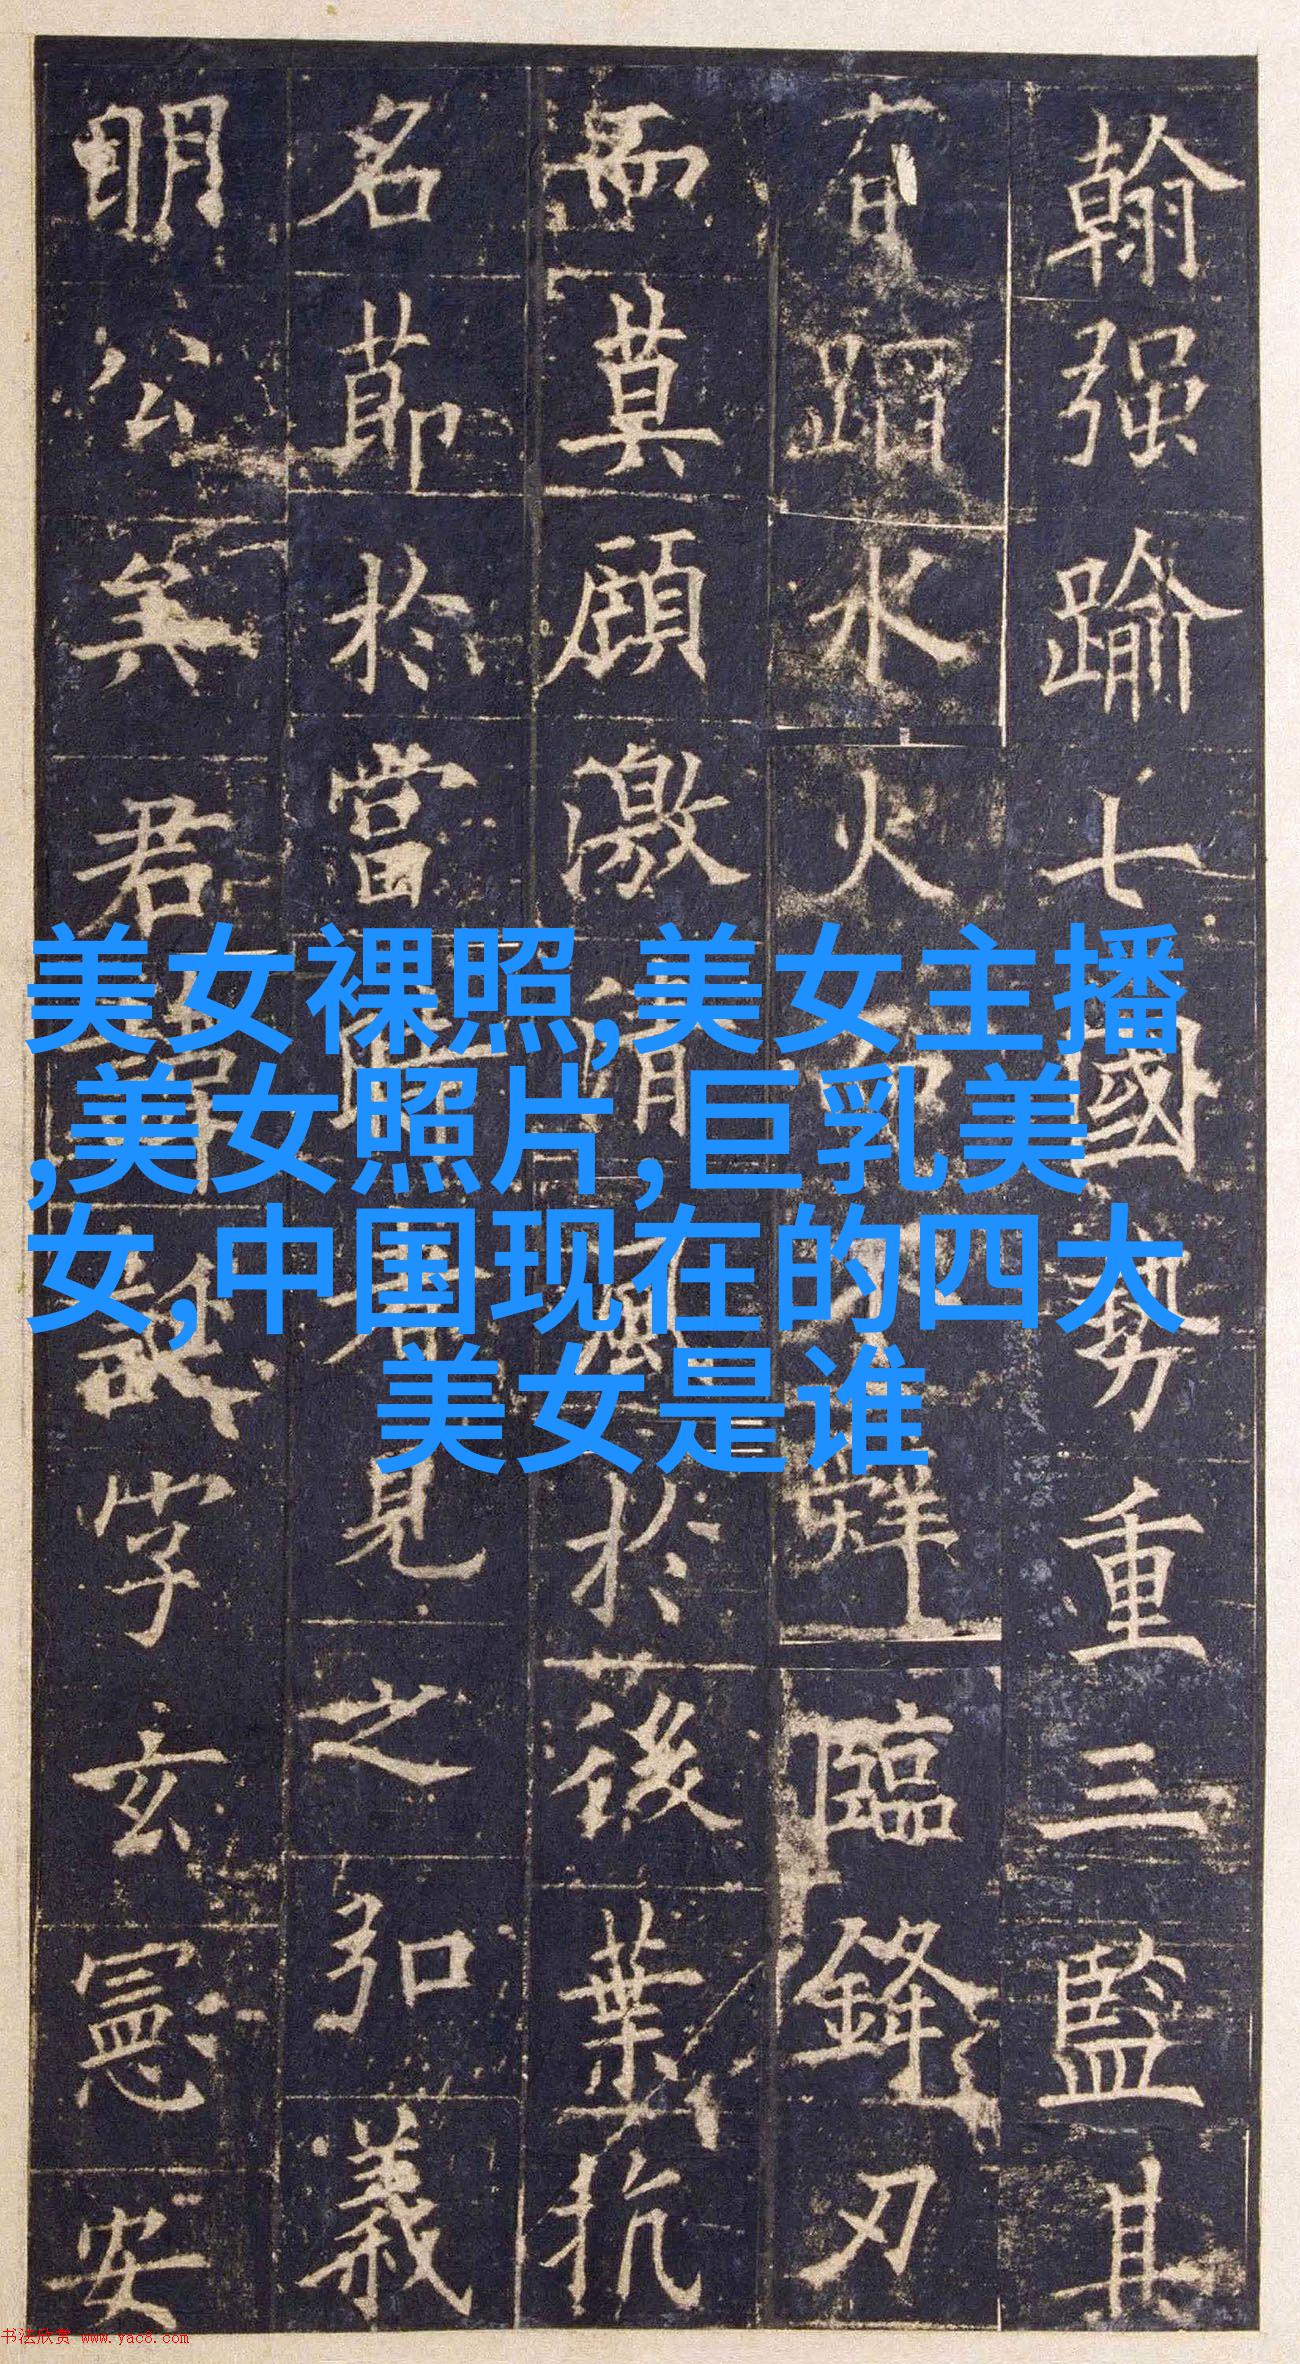 翰强踰七國勢重三監其
有蹈水火而不辤臨鋒刃
而莫顧激清風於後葉抗
名節於當時者見之弘義
明公矣君諱誕字玄憲安
美女裸照,美女主播
,美女照片,巨乳美
女,中国现在的四大
美女是谁
书法欣赏 www.yac8.com